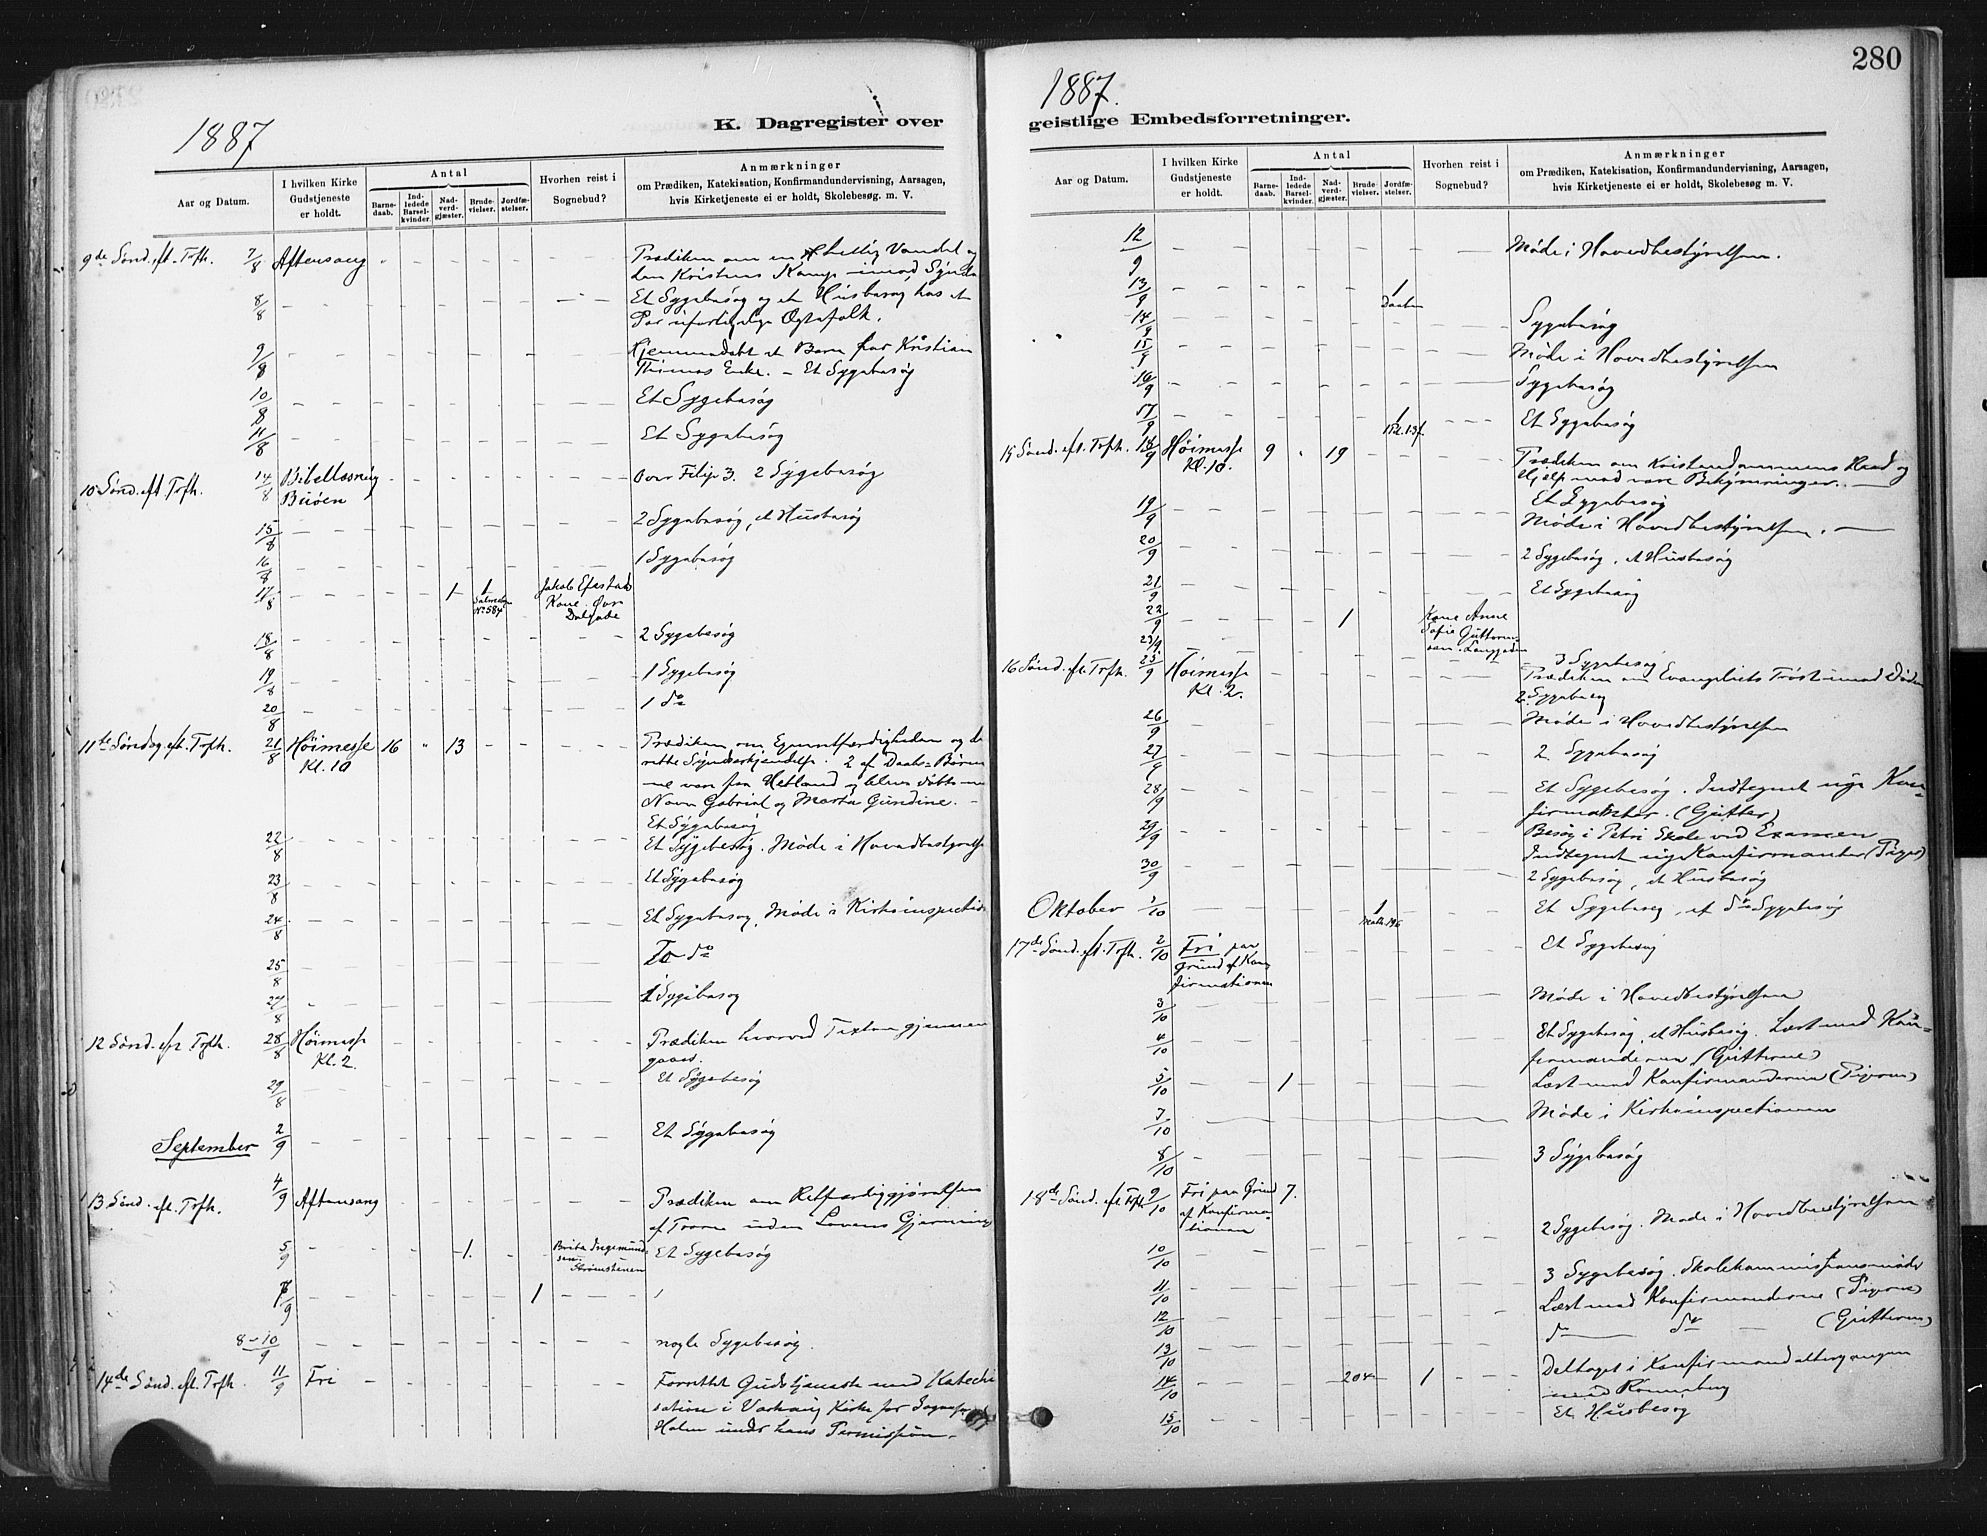 280
1887
K. Dagregister over
Aar og Datum.
I hvilken Kirke Gudstjeneste er holdt.
Antal
Barnedaab.
Indledede Barselkvinder.
Nadverdgjæster.
Brudevielser.
Jordfæstelser.
Hvorhen reist i Sognebud?
Anmærkninger
om Prædiken, Katekisation, Konfirmandundervisning, Aarsagen,
hvis Kirketjeneste ei er holdt, Skolebesøg. m. V.
9de Sønd. eft. Trfh. 7/8 Aftensang Prædiken om en hellig Vandel og
den Kristnes Kamp imod Synden
8/8 Et Sygebesøg og et Husbesøg hos et
Par Ægtefolk.
9/8 Hjemmedøbt et Barn for Kristian
Thomas Enke. – Et Sygebesøg
10/8 Et Sygebesøg
11/8 Et Sygebesøg
10 Sønd. eft. Trfh. 14/8 Bibellæsning Over Filip 3. 2 Sygebesøg
Buøen
15/8 2 Sygebesøg, et Husbesøg
16/8 1 Sygebesøg
17/8 1 1 Jakob
No 584 Kone. Øvre
18/8 2 Sygebesøg
19/8 1 Sygebesøg
20/8 1 do
11te Søndag eft. Trfh. 21/8 Høimesse 16 " 13 Prædiken om Egenretfærdigheden og den
Kl. 10 rette Synderkjendelse. 2 af Daabs-Børne-
ne vare fra Hetland og bleve døbte med
Navn Gabriel og Marta Gundine. –
Et Sygebesøg
22/8 Et Sygebesøg. Møde i Hovedbestyrelse
23/8 Et Sygebesøg
24/8 Et Sygebesøg. Møde i Kirkeinspection
25/8 To do
27/8 1 Sygebesøg
12 Sønd. eft. Trfh. 28/8 Høimesse Prædiken hvorved Texten gjennem
Kl. 2. gaaes.
29/8 Et Sygebesøg
September 2/9 Et Sygebesøg
13 Sønd. eft. Trfh. 4/9 Aftensang Prædiken om Retfærdiggjørelsen
af Troen uden Lovens Gjerning
5/9 1. Brita Ingemund- Et Sygebesøg
sen. Strømstenen
7/9 1
8–10/9 nogle Sygebesøg.
14de Sønd. eft. Trfh. 11/9 Fri Forrettet Gudstjeneste med Kateki
sation i Varhaug Kirke for Sognepræst
Holm under hans Permission.
1887.
geistlige Embedsforretninger.
Aar og Datum.
I hvilken Kirke Gudstjeneste er holdt.
Antal
Barnedaab.
Indledede Barselkvinder.
Nadverdgjæster.
Brudevielser.
Jordfæstelser.
Hvorhen reist i Sognebud?
Anmærkninger
om Prædiken, Katekisation, Konfirmandundervisning, Aarsagen,
hvis Kirketjeneste ei er holdt, Skolebesøg m. V.
12/9 Møde i Hovedbestyrelsen.
13/9 1
14/9 Sygebesøg
15/9 Møde i Hovedbestyrelsen
16/9 Sygebesøg
17/9 1 Et Sygebesøg
15 Sønd. eft. Trfh. 18/9 Høimesse 9 " 19 Prædiken om Kristendommens Raad og
Kl. 10. Hjelp mod vore Bekymringer.
Et Sygebesøg
19/9 Møde i Hovedbestyrelsen.
20/9 2 Sygebesøg, et Husbesøg
21/9 Et Sygebesøg
22/9 1 Kone Anne
Sofie Guttorm-
sen. Langgaden
23/9 3 Sygebesøg
16 Sønd. eft. Trfh. 25/9 Høimesse Prædiken om Evangeliets Trøst imod Døden
Kl. 2. 2 Sygebesøg
26/9 Møde i Hovedbestyrelsen
27/9 2 Sygebesøg
28/9 Et Sygebesøg. Indtegnet nye Kon-
firmanter. (Gutter)
29/9 Besøg i Petri Skole ved Examen
Indtegnet nye Konfirmanter (Piger)
30/9 2 Sygebesøg, et Husbesøg
Oktober 1/10 1 Et Sygebesøg, et do Sygebesøg
17de Sønd. eft. Trfh. 2/10 Fri paa Et Sygebesøg
Grund af Kon-
firmationen
3/10 Møde i Hovedbestyrelsen
4/10 Et Sygebesøg, et Husbesøg. Læst med Kon-
firmanderne (Gutterne)
5/10 1 Læst med Konfirmanderne (Pigerne)
7/10 Møde i Kirkeinspectionen
8/10 3 Sygebesøg
18de Sønd. eft. Trfh. 9/10 Fri paa Grund 7.
af Konfirma-
tionen 2 Sygebesøg. Møde i Hovedbestyrelsen
10/10 3 Sygebesøg. Skolekommissionsmøde
11/10 Læst med Konfirmanderne (Pigerne)
12/10 do do (Gutterne)
13/10 Deltaget i Konfirmandaltergangen
14/10 204 1 med Ronneberg
15/10 Et Husbesøg